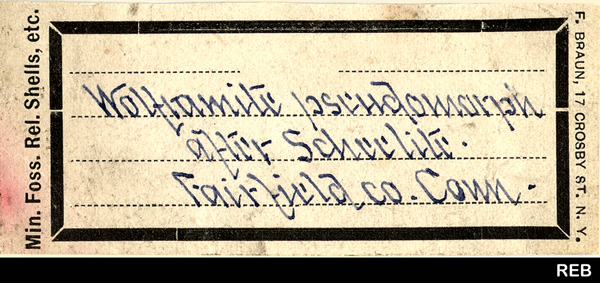 Min. Foss. Rel. Shells, etc.
Wolframite pseudomorph
after Scheelite.
Fairfield, co. Conn.
F. BRAUN, 17 CROSBY ST. N. Y.
REB